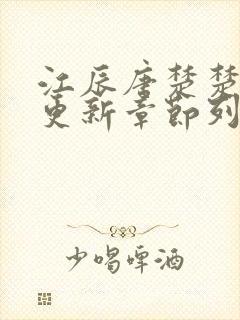 江辰唐楚楚
更新章节列
少喝啤酒